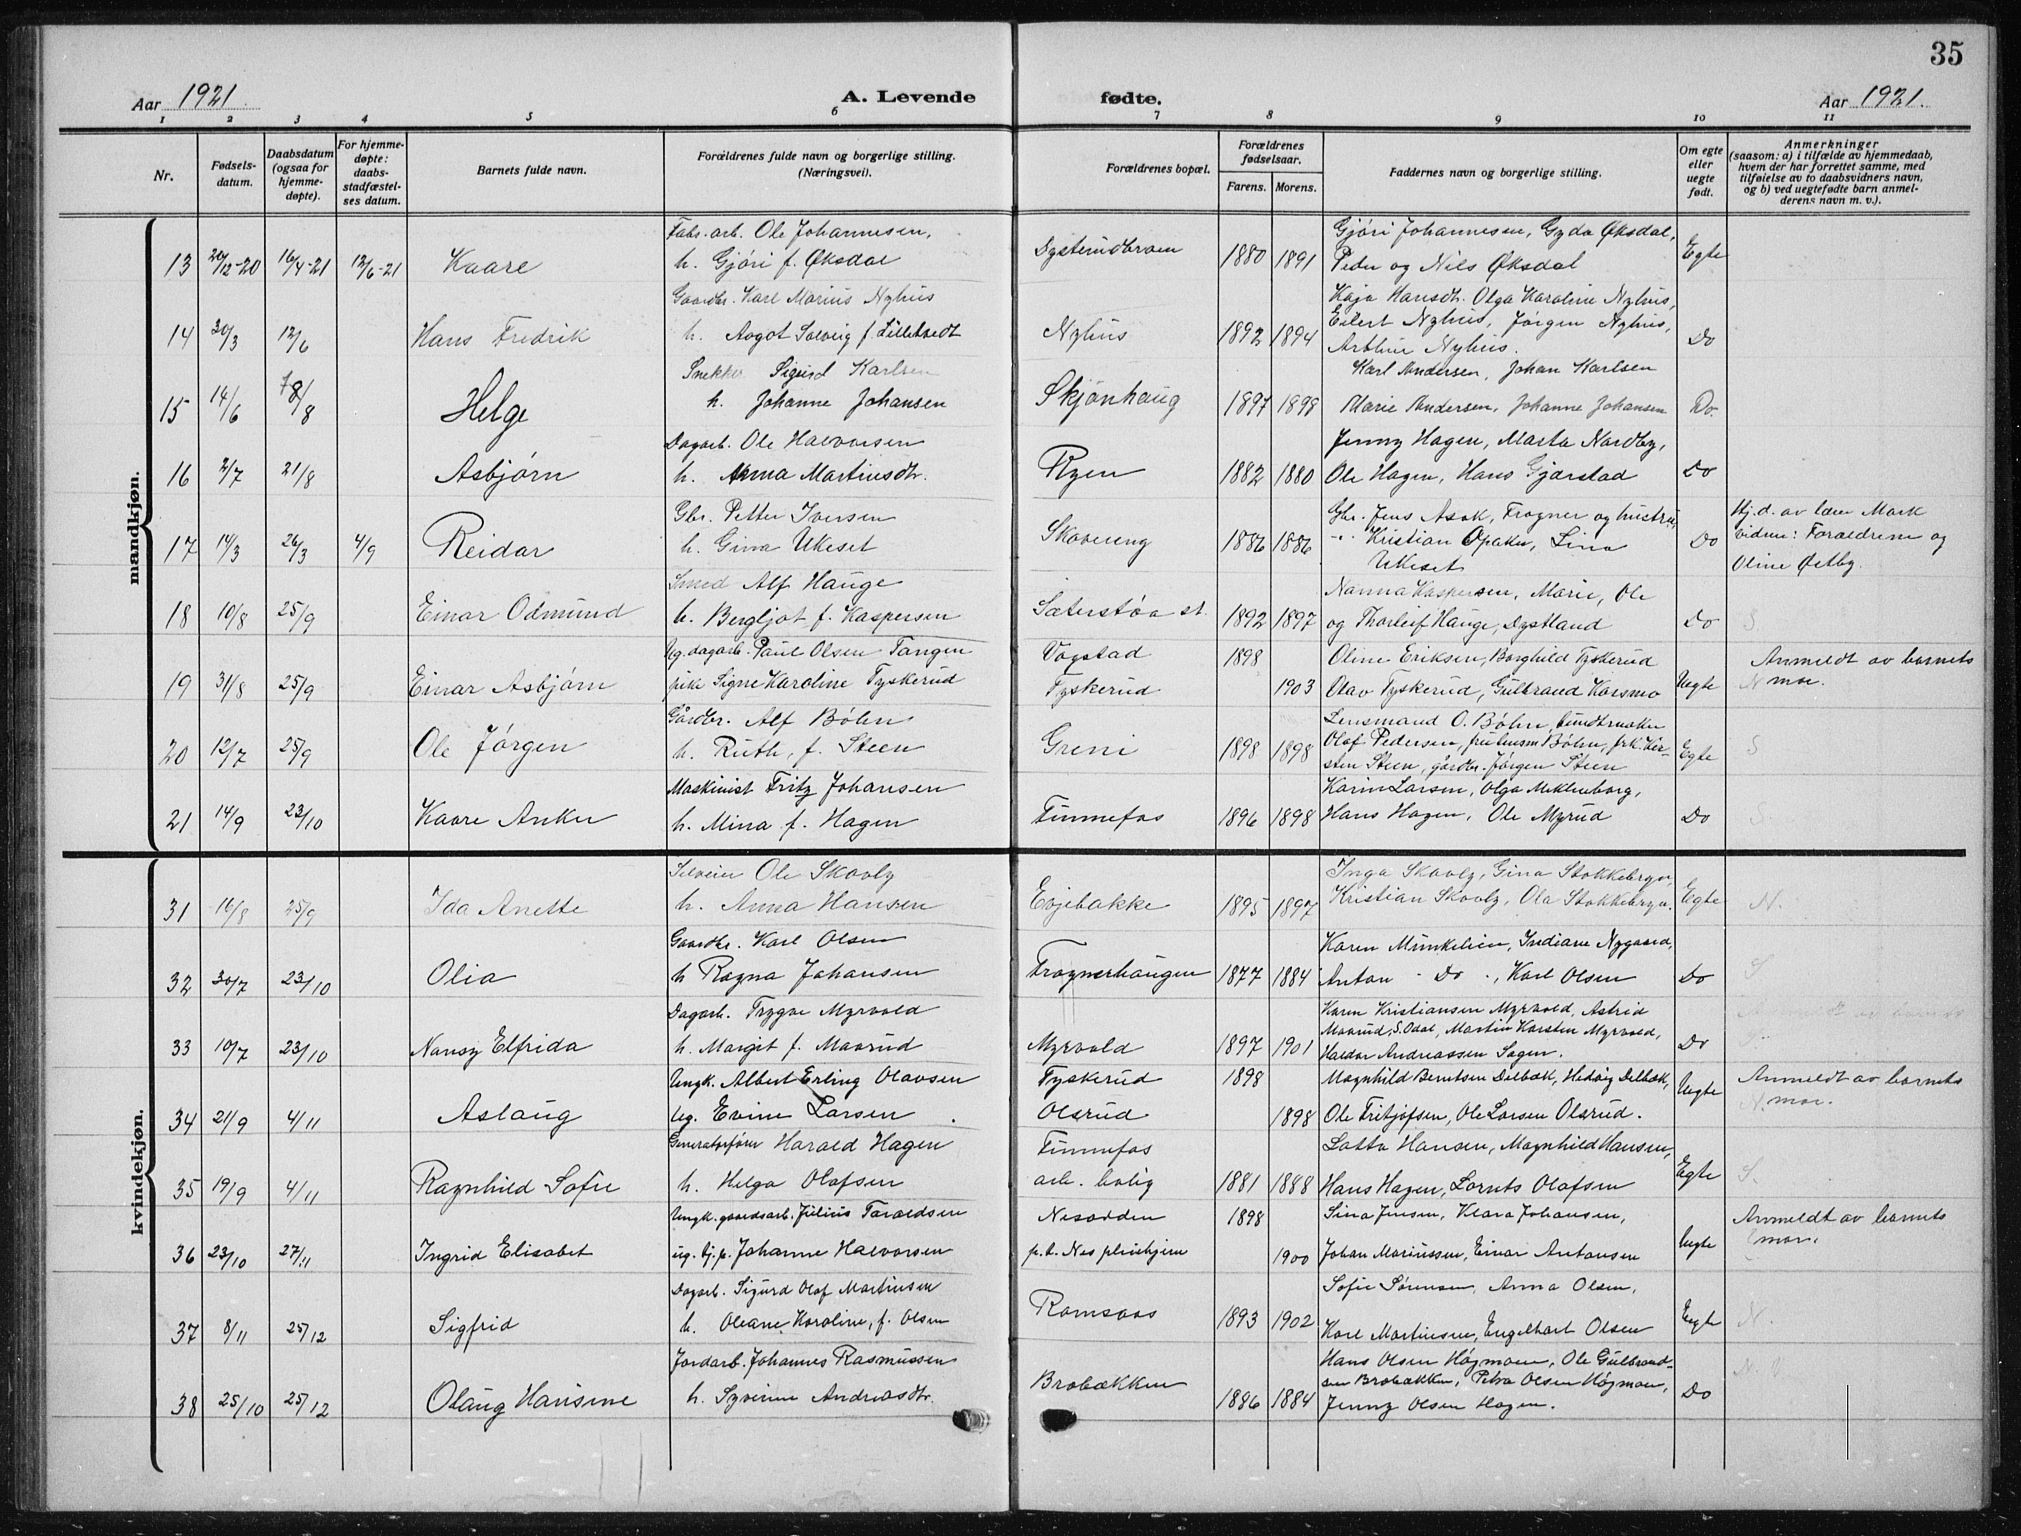 35
Aar 1921.
A. Levende
fødte.
Aar 1921.
1 2 3 4 5 6 7 8 9 10 11
Nr.
Fødsels-
datum.
Daabsdatum
(ogsaa for
hjemme-
døpte).
For hjemme-
døpte:
daabs-
stadfæstel-
ses datum.
Barnets fulde navn.
Forældrenes fulde navn og borgerlige stilling.
(Næringsvei).
Forældrenes bopæl.
Forældrenes
fødselsaar.
Farens. Morens.
Faddernes navn og borgerlige stilling.
Om egte
eller
uegte
født.
Anmerkninger
(saasom: a) i tilfælde av hjemmedaab,
hvem der har forrettet samme, med
tilføielse av to daabsvidners navn,
og b) ved uegtefødte barn anmel-
derens navn m. v.).
mandkjøn.
Fabr. arb. Ole Johannesen, Gjøri Johannesen, Gyda Øksdal,
13 20/12-20 16/4-21 12/6-21 Kaare h. Gjøri f. Øksdal Dysterudbroen 1880 1891 Peder og Nils Øksdal Egte
Gaardbr. Karl Marius Nyhus Kaja Hansdtr. Olga Karoline Nyhus,
14 30/3 12/6 Hans Fredrik h. Aagot Solveig f. Lilletvedt Nyhus 1892 1894 Eilert Nyhus, Jørgen Nyhus, Do
Nyhus.
Snekker Sigurd Karlsen Karl Andersen, Johan Karlsen
15 14/6 /8 Helge h. Johanne Johansen Skjønhaug 1897 1898 Marie Andersen, Johanne Johansen Do.
Dagarb. Ole Halvorsen Jenny Hagen, Marta Nordby,
16 2/7 21/8 Asbjørn h. Anna Martinsdtr. Ryen 1882 1880 Ole Hagen, Hans Gjærstad Do
Gbr. Petter Iversen Gbr. Jens Asak, Frogner og hustru Hj.d. av lærer Mork
17 14/3 26/3 4/9 Reidar h. Gina Ukeset Skovereng 1886 1886 -"- Kristian Opaker, Lina Do Vidner: Forældrene og
Ukeset Oline Østby.
Smed Alf Hauge Nanna Kaspersen, Marie, Ole
18 10/8 25/9 Einar Odmund h. Bergljot f. Kaspersen Sæterstøa st. 1892 1897 og Thorleif Hauge, Dystland Do S
Ug. dagarb. Paul Olsen Tangen Vogstad 1898 Oline Eriksen, Borghild Tyskerud Anmeldt av barnets
19 31/8 25/9 Einar Asbjørn pike Signe Karoline Tyskerud Tyskerud 1903 Olav Tyskerud, Gulbrand Karsmo Uegte N mor.
Gårdbr. Alf Bøhn Lensmand O. Bøhn, bundtmaker
20 12/7 25/9 Ole Jørgen h. Ruth, f. Steen Greni 1898 1898 Olaf Pedersen, fru Bøhn, frk. Kir- Egte S
sten Steen, gårdbr. Jørgen Steen
Maskinist Fritz Johansen Karin Larsen, Olga Meklenborg,
21 14/9 23/10 Kaare Anker h. Mina f. Hagen Funnefos 1896 1898 Hans Hagen, Ole Myrud Do
kvindekjøn.
Ole Skovly Inga Skovly, Gina Stokkebryn,
31 16/8 25/9 Ida Anette h. Anna Hansen Evjebakke 1895 1897 Kristian Skovly, Ola Stokkebryn. Egte N.
Gaardbr. Karl Olsen Karen Munkelien, Indiane Nygaard,
32 30/7 23/10 Olia h Ragna Johansen Frognerhaugen 1877 1884 Anton - Do -, Karl Olsen Do S
Dagarb. Trygve Myrvold Karen Kristiansen Myrvold, Astrid
33 10/7 23/10 Nancy Elfrida h. Margit f. Maarud Myrvold 1897 1901 Maarud, S. Odal, Martin Karsten Myrvold, Do
Haldor Andreassen Sagen.
Ungk. Albert Erling Olavsen Tyskerud 1898 Magnhild Berntsen Delbæk, Hedvig Delbæk, Anmeldt av barnets
34 21/9 4/11 Aslaug Ug. Evine Larsen Olsrud 1898 Ole Fritjofsen, Ole Larsen Olsrud. Uegte N. mor.
Harald Hagen Funnefos Lotta Hansen, Magnhild Hansen,
35 19/9 4/11 Ragnhild Sofie h. Helga Olafsen arb. bolig 1881 1888 Hans Hagen, Lornts Olafsen Egte S.
Ungk. gaardsarb. Julius Taraldsen Nesodden 1898 Lina Jensen, Klara Johansen, Anmeldt av barnets
36 23/10 27/11 Ingrid Elisabet ug. tj.p. Johanne Halvorsen p.t. Nes pleiehjem 1900 Johan Mariussen, Einar Antonsen Uegte mor.
Dagarb. Sigurd Olaf Martinsen Sofie Sørensen, Anna Olsen,
37 8/11 25/12 Sigfrid h. Oleane Karoline, f. Olsen Ramsaas 1893 1902 Karl Martinsen, Engelhart Olsen Egte N.
Jordarb. Johannes Rasmussen Hans Olsen Høgmoen, Ole Gulbrand-
38 25/10 25/12 Olaug Hansine h. Syverine Andreasdtr. Brobækken 1886 1884 sen Brobækken, Petra Olsen Høgmoen, Do
Jenny Olsen Hagen.